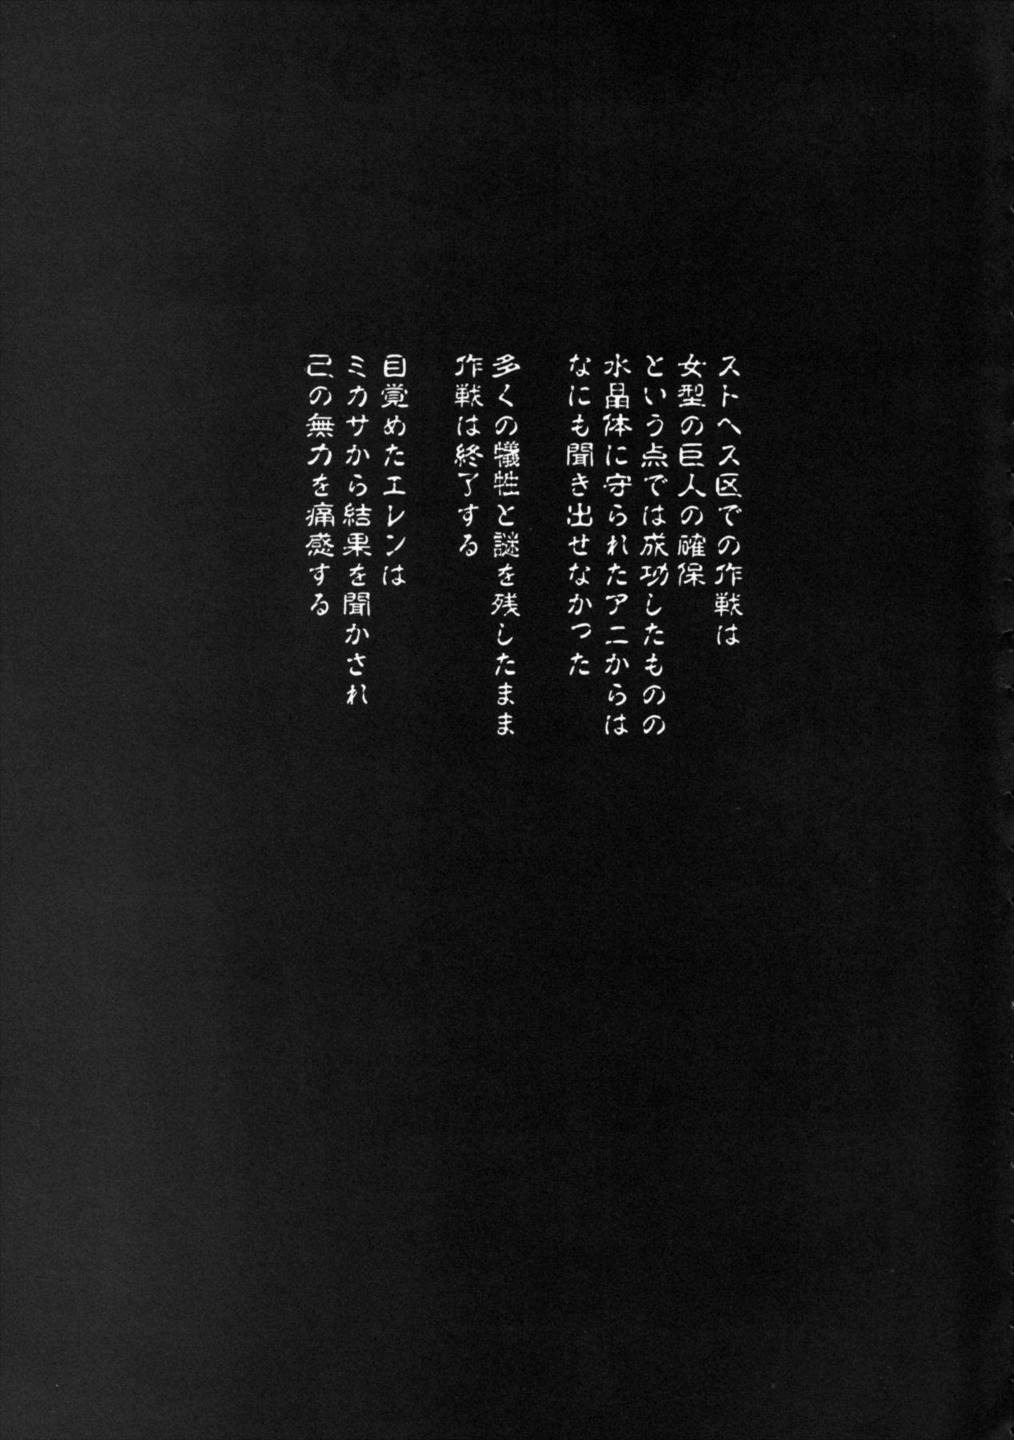 ストヘス区での作戦は
女型の巨人の確保
という点では成功したものの
水晶体に守られたアニからは
なにも聞き出せなかった
多くの犠牲と謎を残したまま
作戦は終了する
目覚めたエレンは
ミカサから結果を聞かされ
己の無力を痛感する